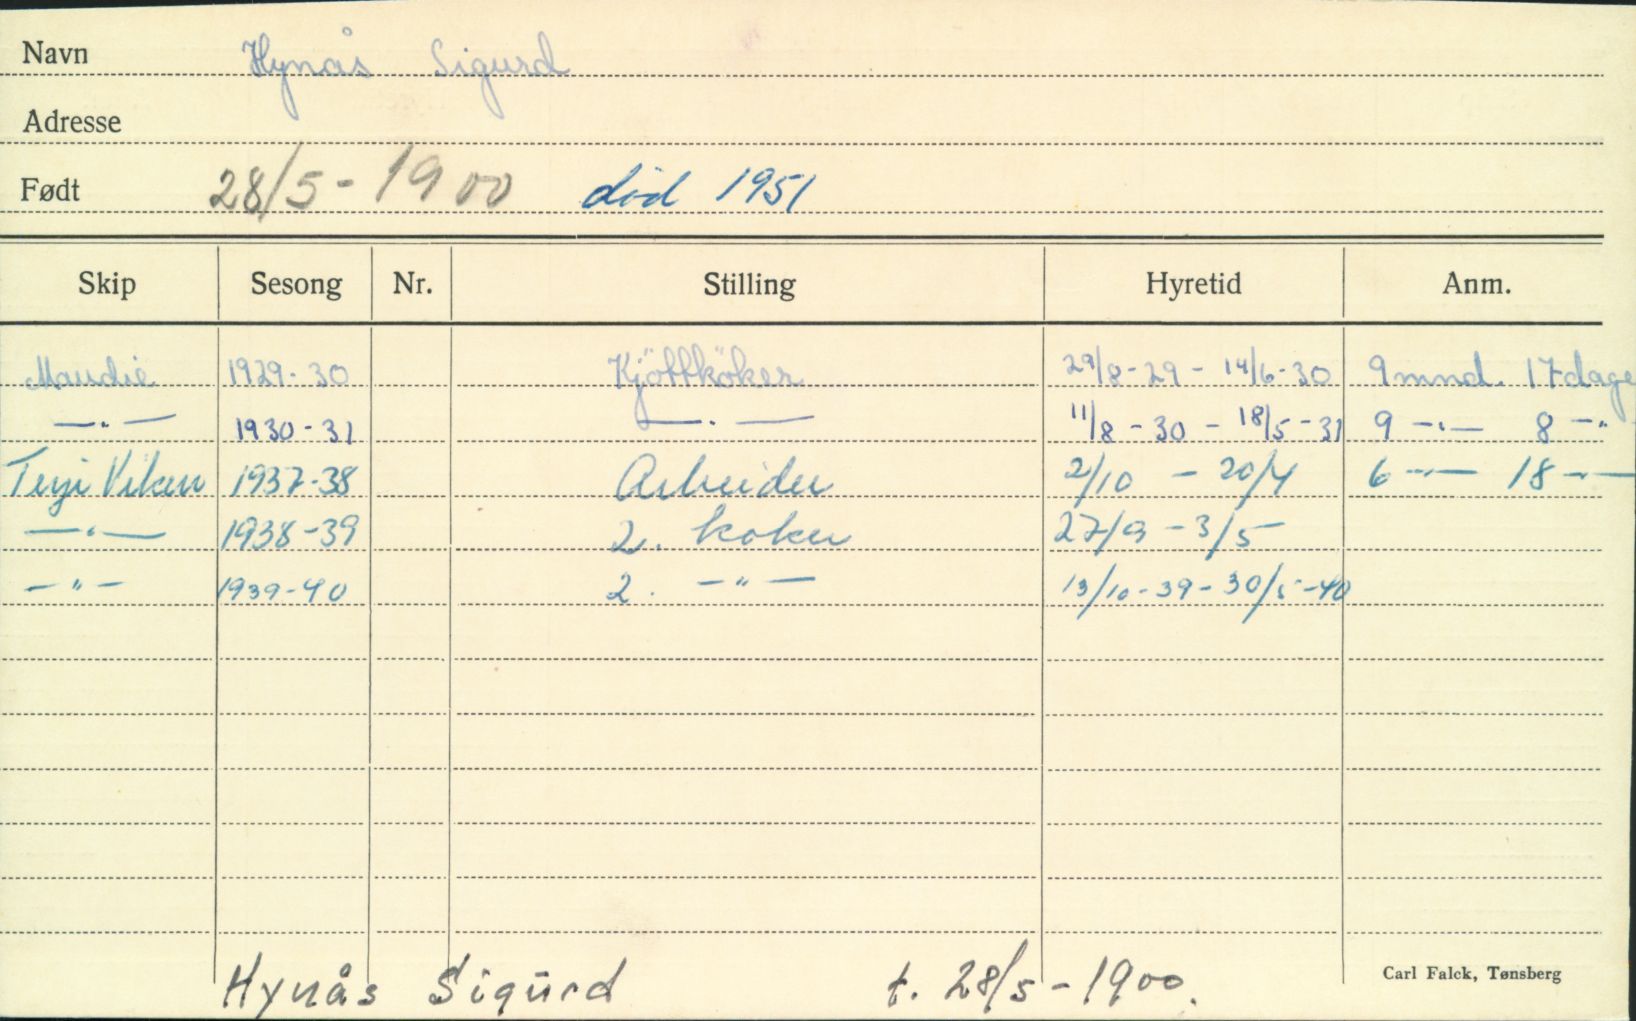 Navn Hynås Sigurd
Adresse
Født 28/5-1900 død 1951
Skip Sesong Nr. Stilling Hyretid Anm.
Maudie 1929-30 Kjöttköker 29/8-29 - 14/6-30 9 mnd. 17 dage
—"— 1930-31 —"— 11/8-30 - 18/5-31 9 —"— 8 —"
Terje Viken 1937-38 Arbeider 2/10 - 20/4 6 —"— 18 —"—
—"— 1938-39 2. koker 27/9 - 3/5
—"— 1939-40 2. —"— 13/10-39 - 30/5-40
Hynås Sigurd f. 28/5-1900.
Carl Falck, Tønsberg